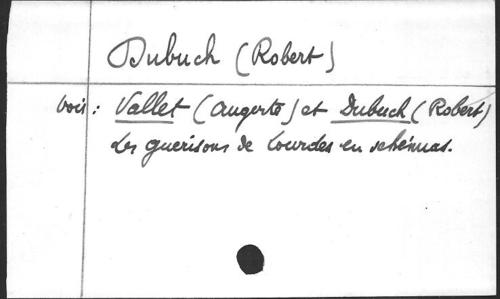 Dubuch (Robert)
Vois : Vallet (Auguste) et Dubuch (Robert)
Les guerisons de Lourdes en schémas.